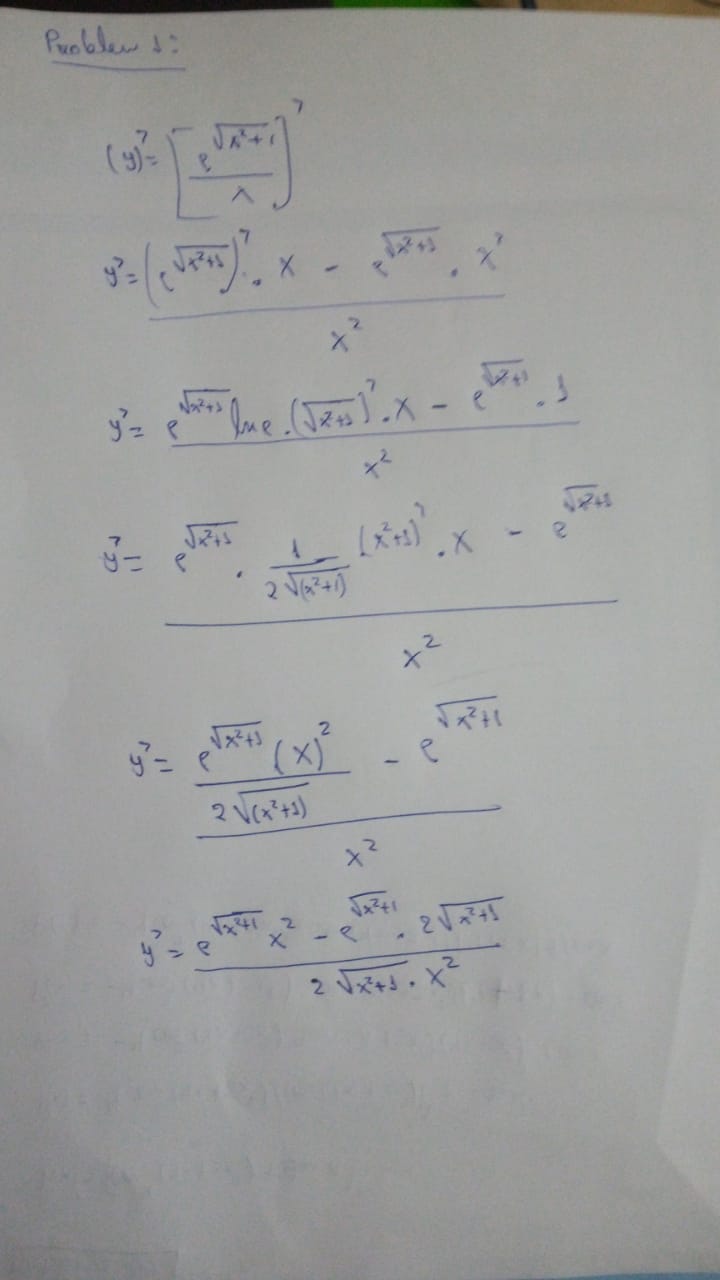 Problem 1:
(y)' = [e^√(x²+1) / x]'
y' = ((e^√(x²+1))' . x - e^√(x²+1) . x') / x²
y' = (e^√(x²+1) ln e . (√(x²+1))' . x - e^√(x²+1) . 1) / x²
y' = (e^√(x²+1) . 1/(2√(x²+1)) (x²+1)' . x - e^√(x²+1)) / x²
y' = (e^√(x²+1) (x)² / (2√(x²+1)) - e^√(x²+1)) / x²
y' = (e^√(x²+1) x² - e^√(x²+1) . 2√(x²+1)) / (2√(x²+1) . x²)